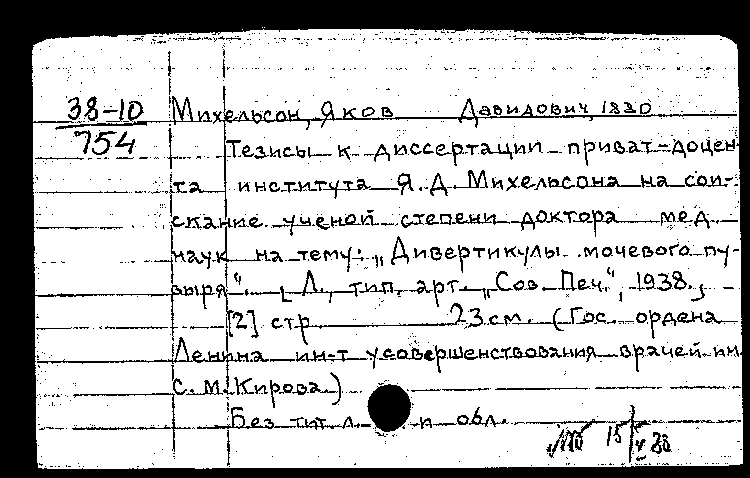 38-10 Михельсон, Яков Давидович, 1880
754
Тезисы к диссертации приват-доцен-
та института Я. Д. Михельсона на сои-
скание ученой степени доктора мед.
наук на тему: „Дивертикулы мочевого пу-
зыря". [Л., тип. арт. „Сов. Печ.", 1938.]
[2] стр. 23 см. (Гос. ордена
Ленина ин-т усовершенствования врачей им.
С. М. Кирова.)
Без тит. л. и обл.
15